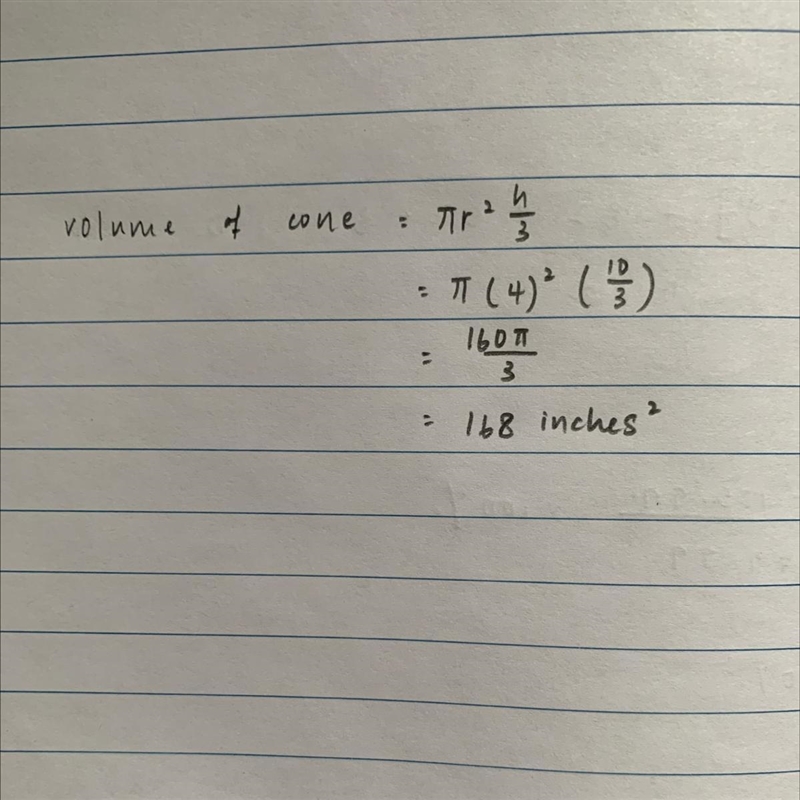 volume of cone = πr² h/3
= π (4)² (10/3)
= 160π/3
= 168 inches²